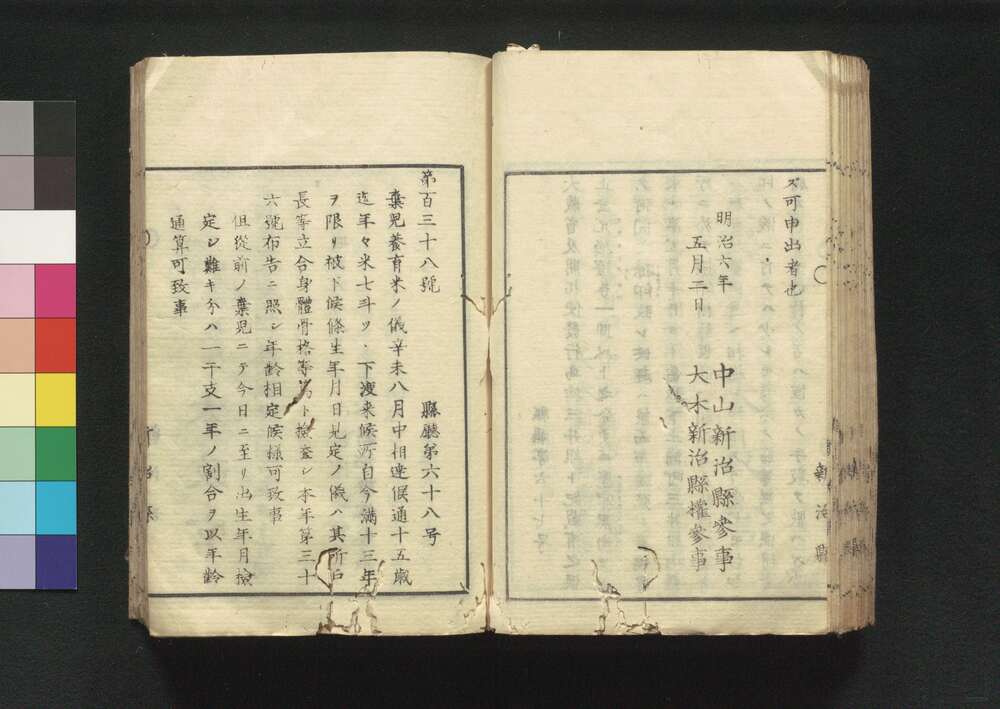 ズ可申出者也
明治六年
五月二日
中山新治縣參事
大木新治縣權參事
新治縣
第百三十八號
縣廳第六十八号
棄児養育米ノ儀辛未八月中相達候通十五歳
迄年々米七斗ツヽ下渡来候所自今満十三年
ヲ限リ被下候條生年月日見定ノ儀ハ其所戸
長等立合身體骨格等篤ト撿査シ本年第三十
六號布告ニ照シ年齢相定候様可致事
但從前ノ棄児ニテ今日ニ至リ出生年月撿
定シ難キ分ハ一干支一年ノ割合ヲ以年齢
通算可致事